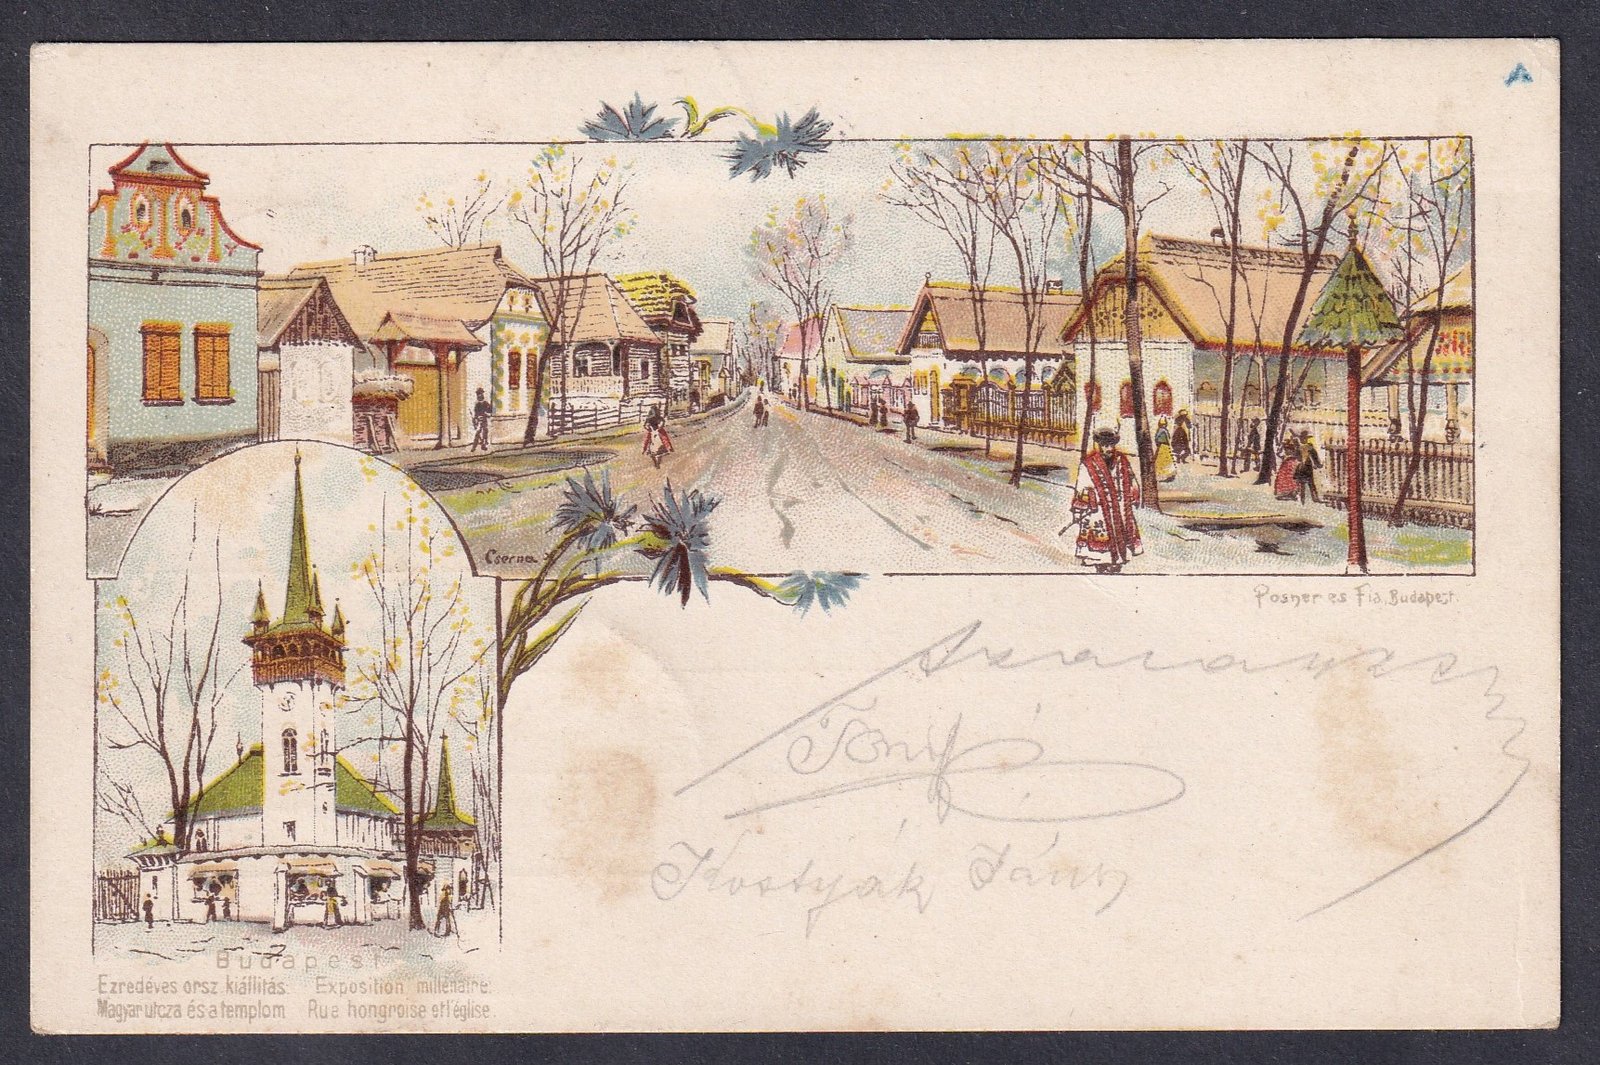 Cserna
Posner és Fia, Budapest.
Kostyák János
Budapest
Ezredéves orsz kiállitás: Exposition millénaire:
Magyar utcza és a templom Rue hongroise et l'église.